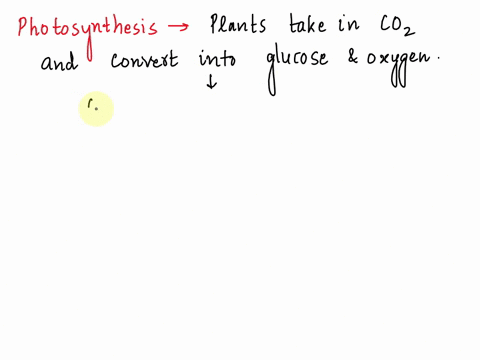 Photosynthesis → Plants take in CO₂
and convert into glucose & oxygen.
↓